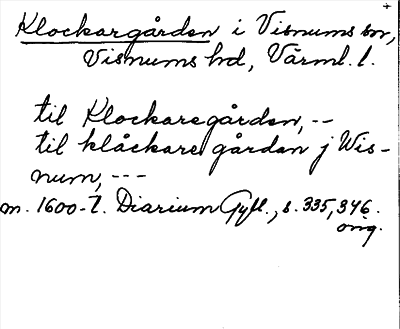 Klockargården i Visnums sn,
Visnums hd, Värml. l.
til Klockaregården, --
til klåckare gårdan j Wis-
num, ---
m. 1600-t. Diarium Gyll., s. 335, 346.
orig.